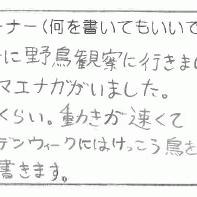 ーナー(何を書いてもいいで
に野鳥観察に行きま
マエナガがいました。
くらい。動きが速くて
デンウィークにはけっこう鳥を
書きます。